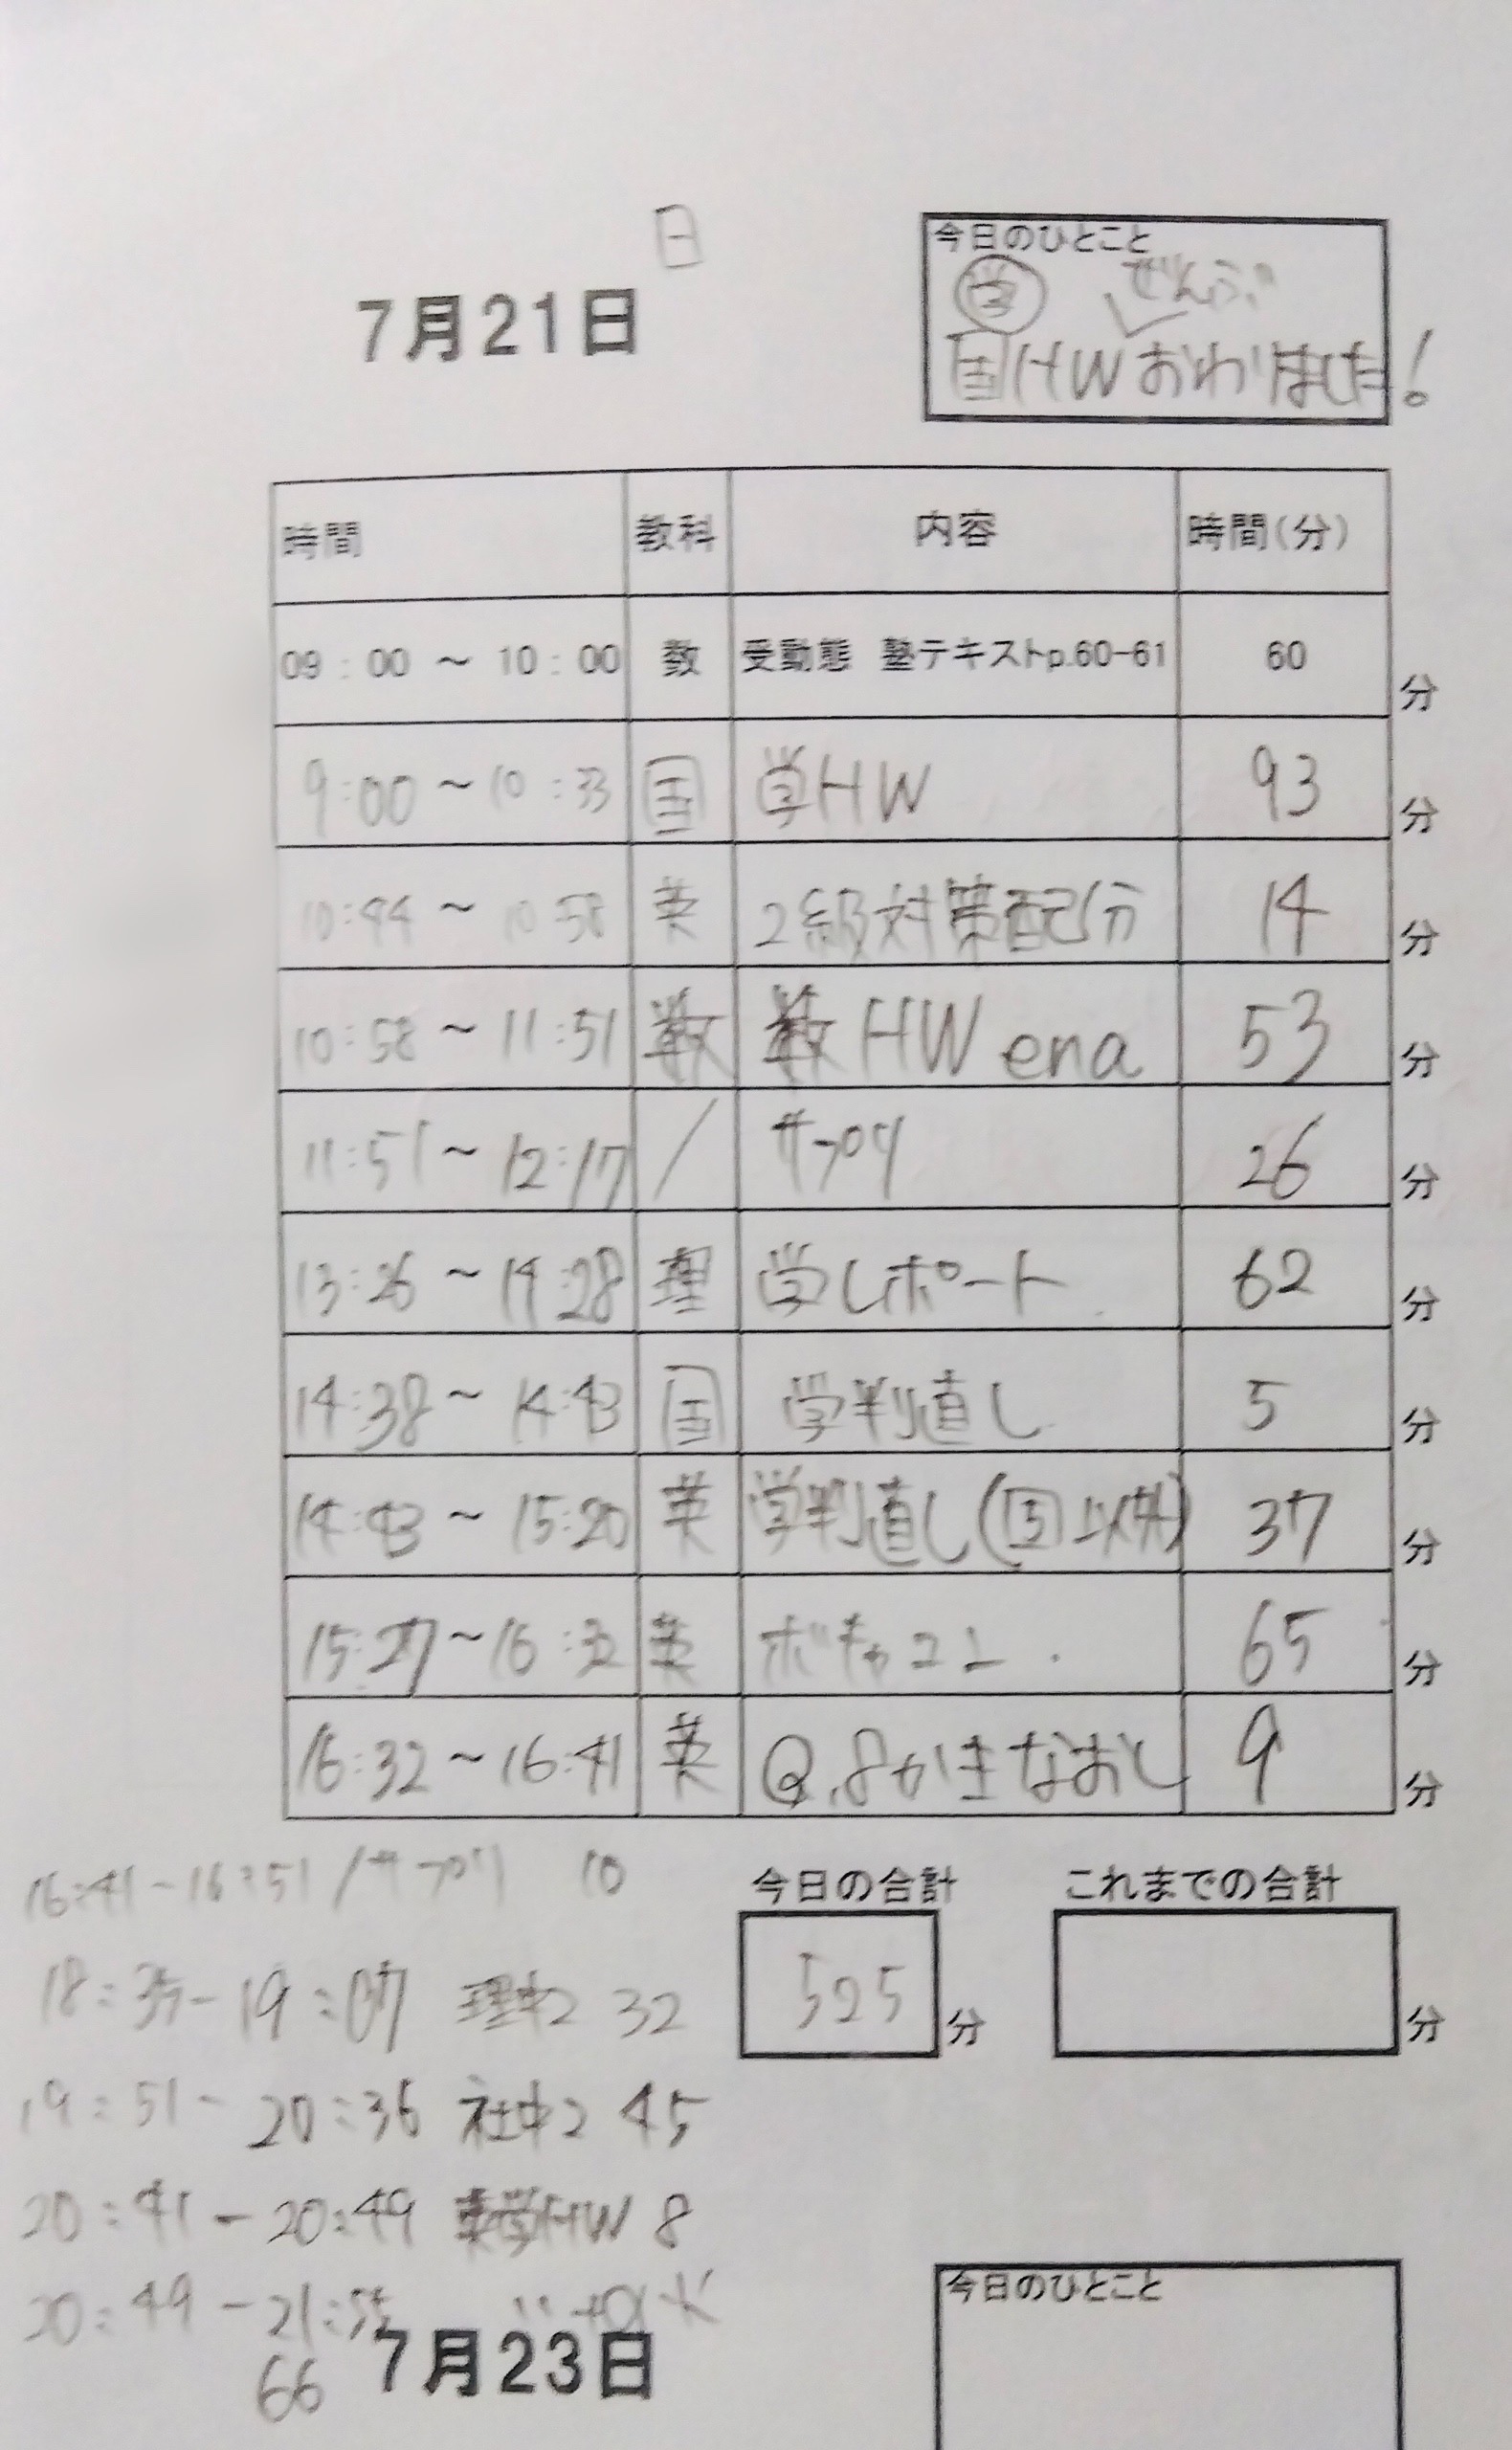 日
7月21日
今日のひとこと
学 ぜんぶ
国HWおわりました!
時間 教科 内容 時間(分)
09:00 ~ 10:00 数 受動態 塾テキストp.60-61 60 分
9:00 ~ 10:33 国 学HW 93 分
10:44 ~ 10:58 英 2級対策配分 14 分
10:58 ~ 11:51 数 数HW ena 53 分
11:51 ~ 12:17 / サプリ 26 分
13:26 ~ 14:28 理 学レポート 62 分
14:38 ~ 14:43 国 学判直し 5 分
14:43 ~ 15:20 英 学判直し(国以外) 37 分
15:27 ~ 16:32 英 ボキャコン 65 分
16:32 ~ 16:41 英 Q.8かきなおし 9 分
16:41-16:51 / サプリ 10
今日の合計 これまでの合計
525 分 分
18:35-19:07 理中2 32
19:51-20:36 社中2 45
20:41-20:49 英学HW 8
20:49-21:55
66
7月23日
今日のひとこと